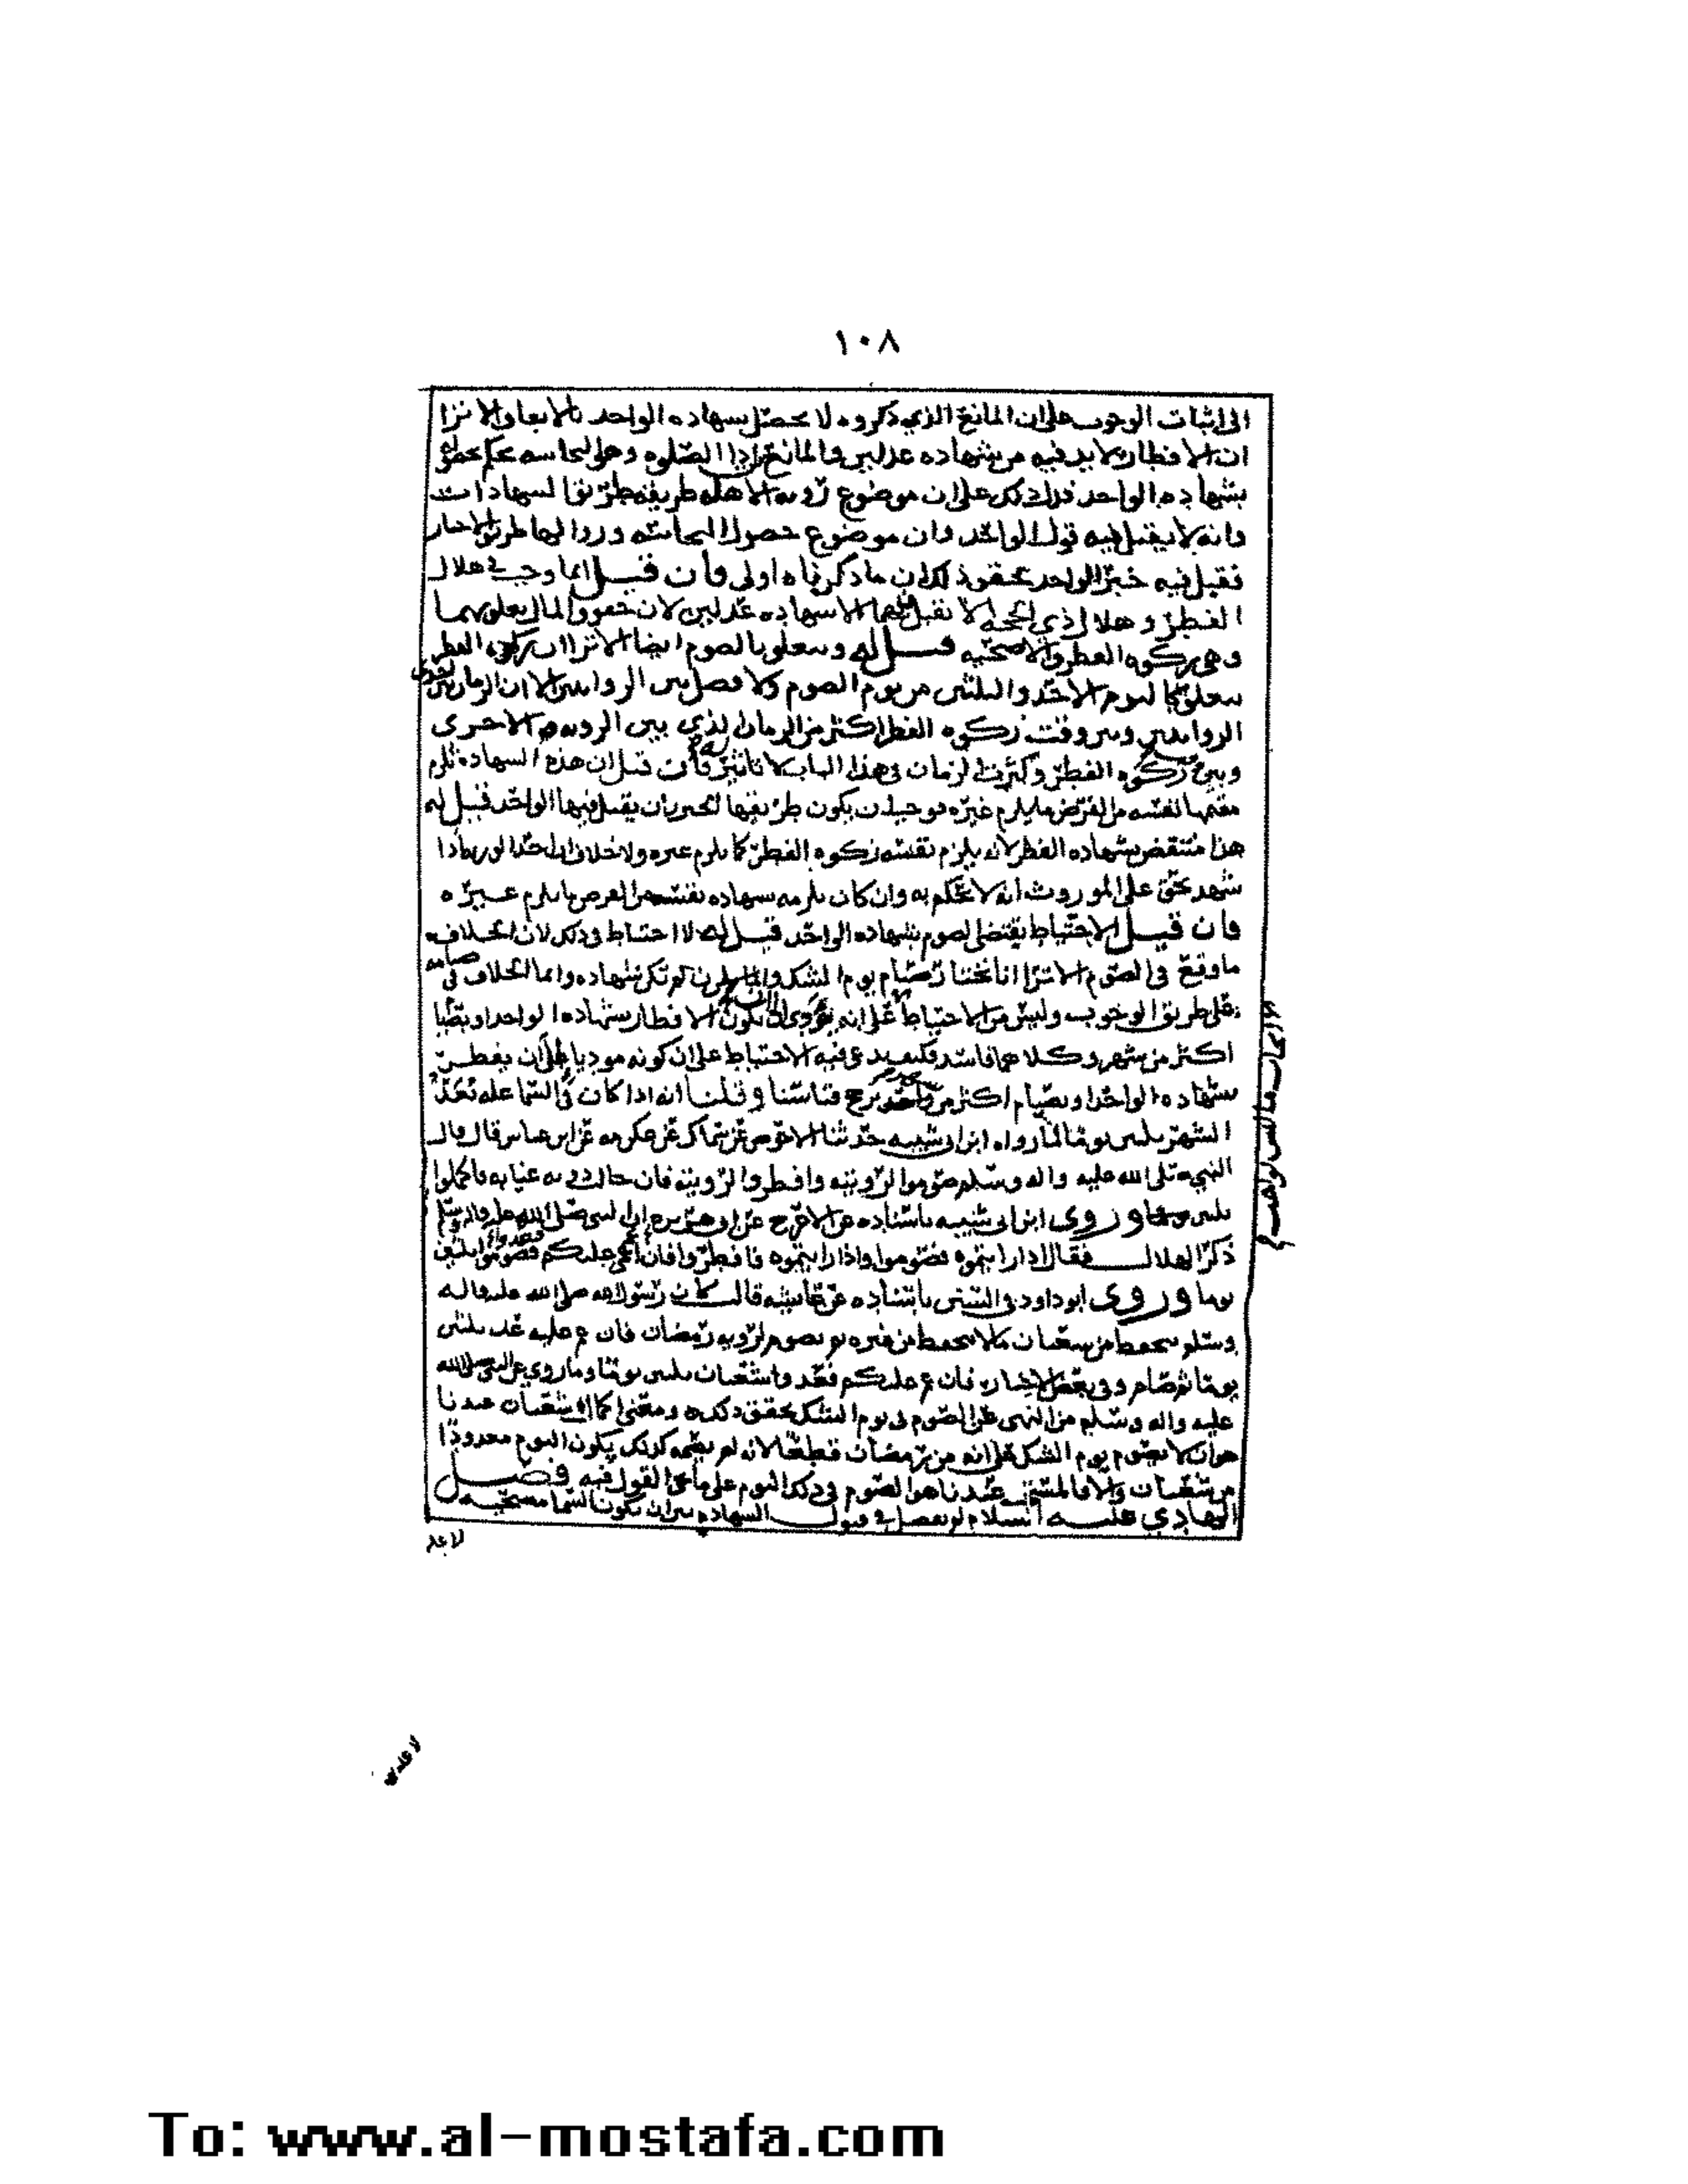 ١٠٨
الى اثبات الوجوب على ان المانع الذي ذكروه لا يحصل بشهاده الواحد بالاتفاق الا ترا
ان الافطار لا بد فيه من شهاده عدلين والمانع من اداا الصلوه وهي النجاسه يحكم بحصولها
بشهاده الواحد فدل ذلك على ان موضوع رويه الاهله طريقه طريق الشهادات
وانه لا يقبل فيه قول الواحد وان موضوع حصول النجاسه وزوالها طريق الاخبار
فقيل فيه خبر الواحد تحقق ذلك ان ما ذكرناه اولى فأن قيل انما وجب في هلال
الفطر وهلال ذي الحجه الا نقبل فيهما الا شهاده عدلين لان حقوق المال يتعلق بهما
وهي زكوه الفطر والاضحيه قيل له ويتعلق بالصوم ايضا الا ترا ان زكوه الفطر
يتعلق لليوم الاحد والثلثين من يوم الصوم ولا فصل بين الروايتين الا ان الزمان بين
الروايتين وبين وقت زكوه الفطر اكثر من الزمان الذي بين الرويه الاخرى
وبين زكوه الفطر وكثرت الزمان في هذا الباب لا تاثير له فأن قيل ان هذه الشهاده تلزم
مقيمها نفسه من الفرض ما يلزم غيره فوجب ان يكون طريقها الخبر بان يقبل فيها الواحد قيل له
هذا منتقض بشهاده الفطر لانه يلزم نفسه زكوه الفطر كما يلزم غيره ولا خلاف ان احد الورثه اذا
شهد بحق على الموروث انه لا يحكم به وان كان يلزمه بشهاده نفسه من الفرض ما يلزم غيره
فان قيل الاحتياط يقتضي الصوم بشهاده الواحد قيل له لا احتياط في ذلك لان الخلاف
ما وقع في الصوم الا ترا انا نختار صيام يوم الشك وان لم تكن شهاده وانما الخلاف في صيامه
على طريق الوجوب وليس من الاحتياط على انه يودي الى ان يكون الافطار بشهاده الواحد او بصيام
اكثر من شهر وكلاهما فاسد فكيف يدعي فيه الاحتياط على ان كونه موديا الى ان يفطر
بشهاده الواحد او بصيام اكثر من واحد يرجح قياسنا وقلنا انه اذا كان في السما عله نعد
الشهر ثلثين يوما لما رواه ابن ابي شيبه حدثنا الاحوص عن سماك عن عكرمه عن ابن عباس قال قال
النبي صلى الله عليه واله وسلم صوموا لرويته وافطروا لرويته فان حالت دونه غيابه فاكملوا
ثلثين يوما وروى ابن ابي شيبه باسناده عن الاعرج عن ابي هريره ان النبي صلى الله عليه واله وسلم
ذكر الهلال فقال اذا رايتموه فصوموا واذا رايتموه فافطروا فان غمي عليكم فصوموا ثلثين
يوما وروى ابو داود في السنن باسناده عن عايشه قالت كان رسول الله صلى الله عليه واله
وسلم يتحفظ من شعبان ما لا يتحفظ من غيره ثم يصوم لرويه رمضان فان غم عليه عد ثلثين
يوما ثم صام وفي بعض الاخبار فان غم عليكم فعدوا شعبان ثلثين يوما وما روي عن النبي صلى الله
عليه واله وسلم من النهي عن الصوم في يوم الشك يحقق ذلك ومعنى اكمال شعبان عندنا
هو ان لا يصوم يوم الشك على انه من رمضان قطعا لانه لم يصمه كذلك يكون اليوم معدودا
من شعبان والا فالمستحب عندنا هو الصوم في ذلك اليوم على ما مضى القول فيه فصل
الهادي عليه السلام لم يفصل في قبول الشهاده بين ان يكون السما مصحيه